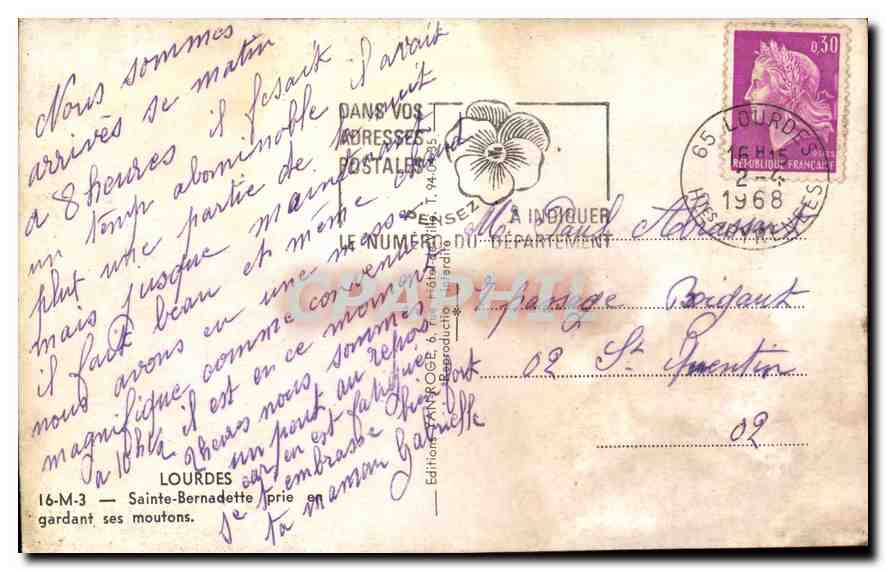 Nous sommes
arrivés se matin
a 8 heures il fesait
un temp abominoble il avait
plut une partie de la nuit
mais jusque maintenant
il fait beau et même chaud
nous avons eu une messe
magnifique comme convenu
a 10h½ il est en ce moment
2 heures nous sommes
un peut au repos
car en est fatiguée
je t'embrasse bien fort
ta maman Gabrielle
LOURDES
16-M-3 — Sainte-Bernadette prie en
gardant ses moutons.
Editions VAN ROGE, 6, rue Hôtel de Ville, T. 94-04-35
Reproduction interdite
DANS VOS
ADRESSES
POSTALES
PENSEZ
A INDIQUER
LE NUMÉRO DU DÉPARTEMENT
0,30
POSTES
RÉPUBLIQUE FRANÇAISE
65 LOURDES
16H15
2-4
1968
HTES PYRENEES
CPAPHIL
Mr Paul
2 passage
02 St Quentin
02